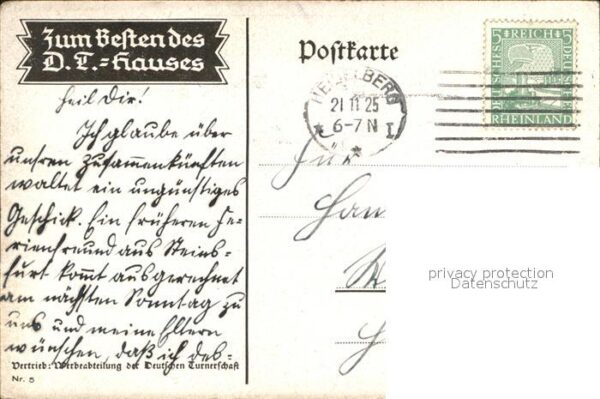 Zum Besten des
D.T.-Hauses
Postkarte
HEIDELBERG
21 11 25
6-7 N
I
5 REICH 5
DEUTSCHES
RHEINLAND
Heil Dir!
Ich glaube über
unsren Zusammenkünften
waltet ein ungünstiges
Geschick. Ein früheren Fe-
rienfreund aus Steins-
furt kommt ausgerechnet
am nächsten Sonntag zu
uns und meine Eltern
wünschen, daß ich des-
Für
privacy protection
Datenschutz
Vertrieb: Werbeabteilung der Deutschen Turnerschaft
Nr. 5